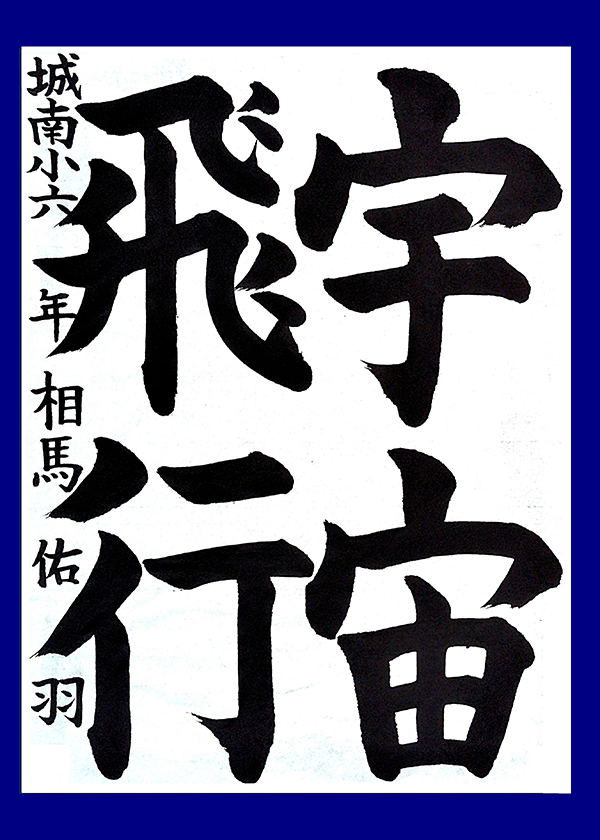 宇宙
飛行
城南小六年相馬佑羽